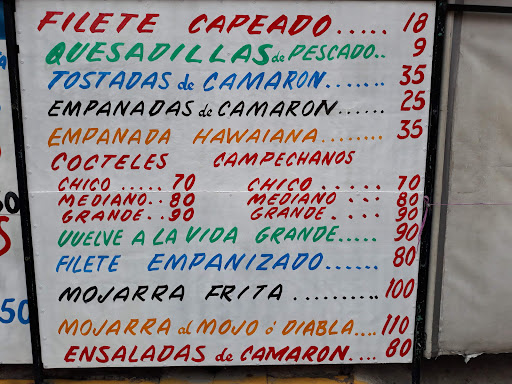 FILETE CAPEADO..... 18
QUESADILLAS de PESCADO.. 9
TOSTADAS de CAMARON...... 35
EMPANADAS de CAMARON...... 25
EMPANADA HAWAIANA........ 35
COCTELES CAMPECHANOS
CHICO ..... 70 CHICO ..... 70
MEDIANO.. 80 MEDIANO ... 80
GRANDE.. 90 GRANDE . ... 90
VUELVE A LA VIDA GRANDE..... 90
FILETE EMPANIZADO...... 80
MOJARRA FRITA .......... 100
MOJARRA al MOJO ó DIABLA.... 110
ENSALADAS de CAMARON.... 80
50